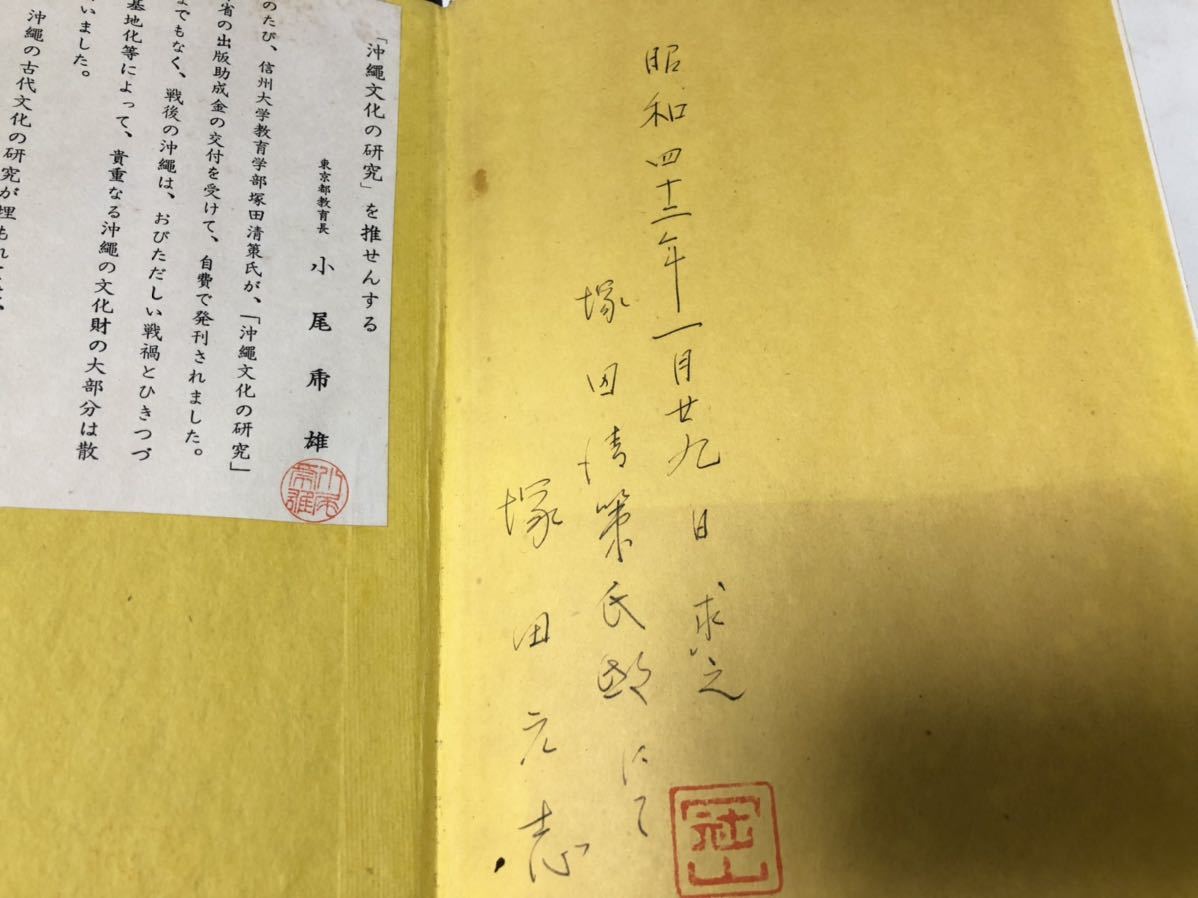 「沖繩文化の研究」を推せんする
東京都教育長 小尾乕雄
のたび、信州大学教育学部塚田清策氏が、「沖繩文化の研究」
省の出版助成金の交付を受けて、自費で発刊されました。
までもなく、戦後の沖繩は、おびただしい戦禍とひきつづ
基地化等によって、貴重なる沖繩の文化財の大部分は散
いました。
沖繩の古代文化の研究が埋もれ
昭和四十三年一月廿九日求之
塚田清策氏邸にて
塚田元志